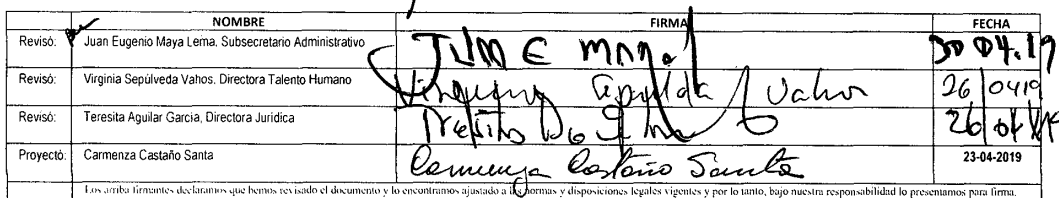 NOMBRE FIRMA FECHA
Revisó: Juan Eugenio Maya Lema. Subsecretario Administrativo JUAN E MAYA 30 04.19
Revisó: Virginia Sepúlveda Vahos. Directora Talento Humano Virginia Sepúlveda Vahos 26/0419
Revisó: Teresita Aguilar García, Directora Jurídica Teresita 26/04
Proyectó: Carmenza Castaño Santa Carmenza Castaño Santa 23-04-2019
Los arriba firmantes declaramos que hemos revisado el documento y lo encontramos ajustado a las normas y disposiciones legales vigentes y por lo tanto, bajo nuestra responsabilidad lo presentamos para firma.